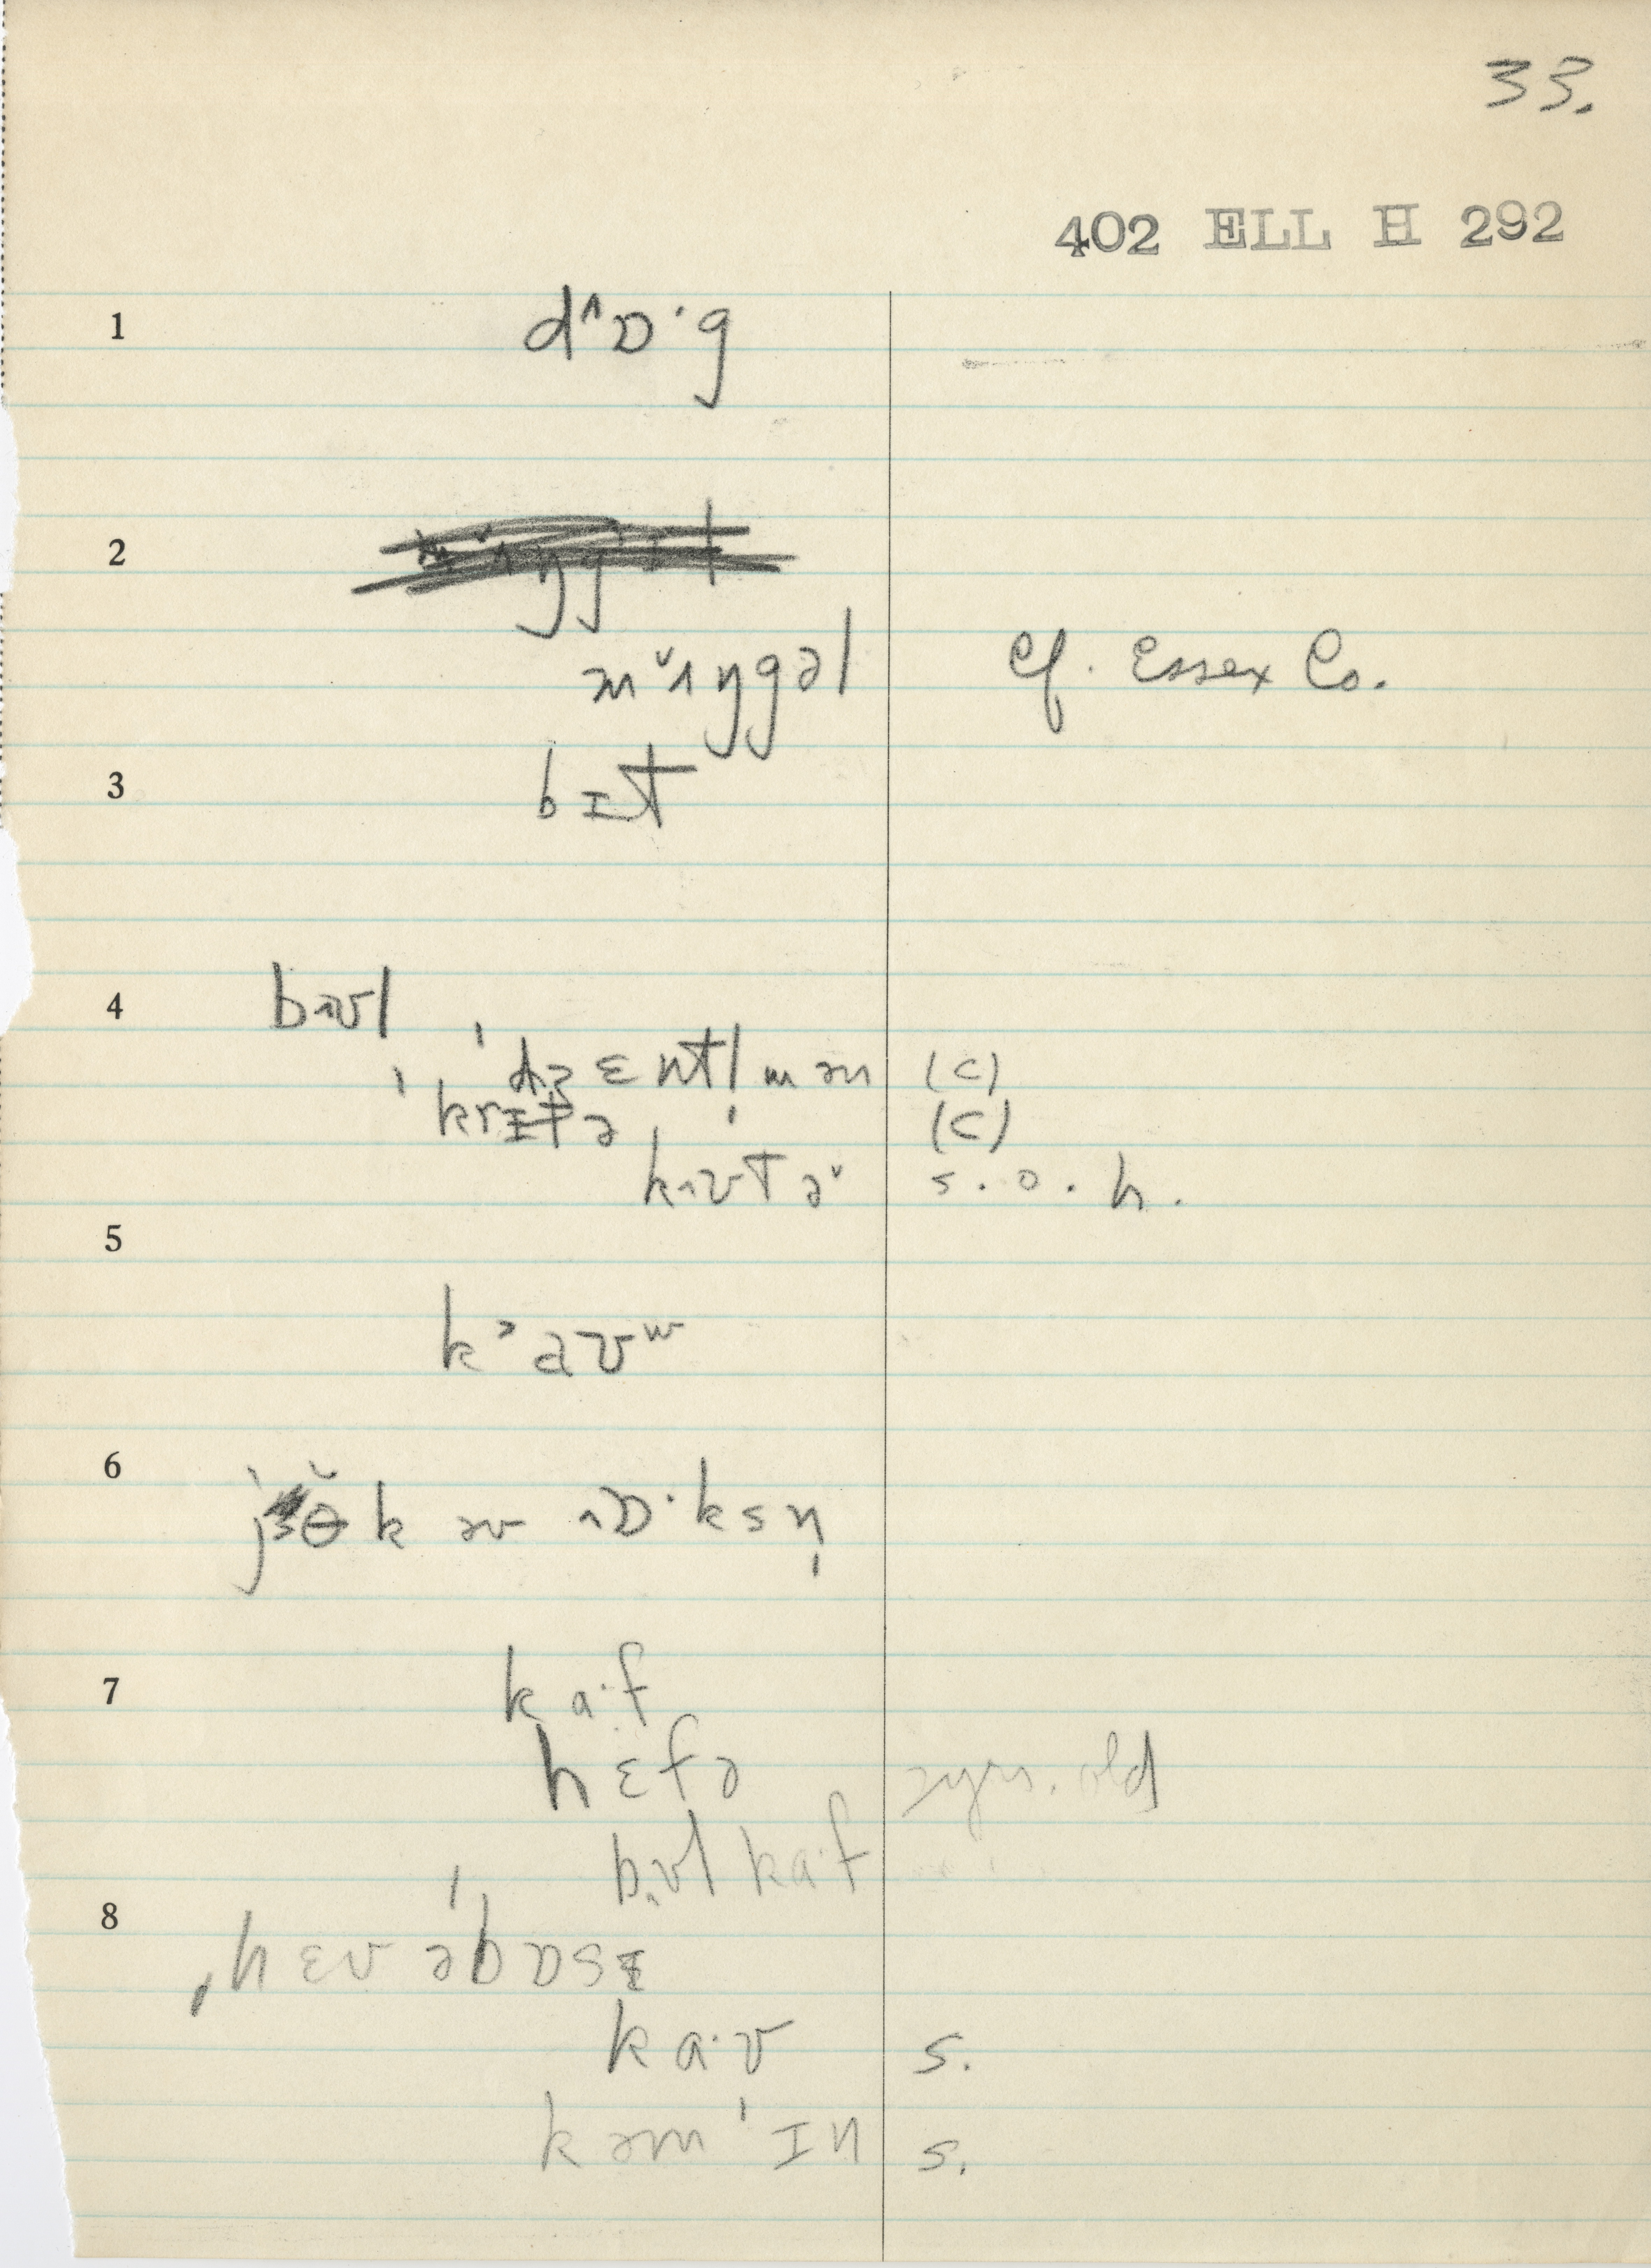 33.
402 ELL H 292
1 d^ɒ·g
2
mˇʌŋgəl cf. Essex Co.
3 bɪt
4 bʌʊl
ˈdʒɛntl̩mən (c)
ˈkrɪtə (c)
kʌʊtə˅ s.o.h.
5
k˃aʊʷ
6 jɵ̆k əv ʌɒ·ksn̩
7 ka·f
hɛfə 2yrs. old
bʌʊl ka·f
8 ˌhɛv əˈbɒsɪ
ka·v s.
kəmˈɪn s.